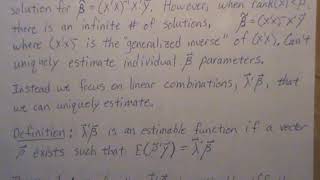 solution for β̂ = (X'X)⁻¹X'Y⃗. However, when rank(X)<p,
there is an infinite # of solutions, β̃ = (X'X)⁻X'Y⃗
where (X'X)⁻ is the "generalized inverse" of (X'X). Can't
uniquely estimate individual β parameters.
Instead we focus on linear combinations, λ⃗'β⃗, that
we can uniquely estimate.
Definition: λ⃗'β⃗ is an estimable function if a vector
ρ⃗ exists such that E(ρ⃗'Y⃗) = λ⃗'β⃗